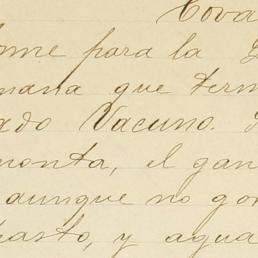 Cova
ome para la
mana que term
ado Vacuno.
monta, el gan
aunque no gor
pasto, y agua